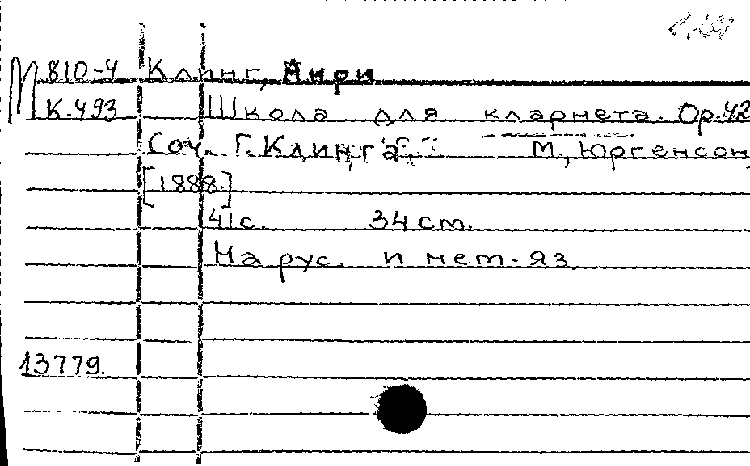 М 810-4 Клинг, Анри
К.493 Школа для кларнета. Ор.42
Соч. Г. Клинга. М., Юргенсон,
[1888]
41с. 34 см.
На рус. и нем. яз.
13779.